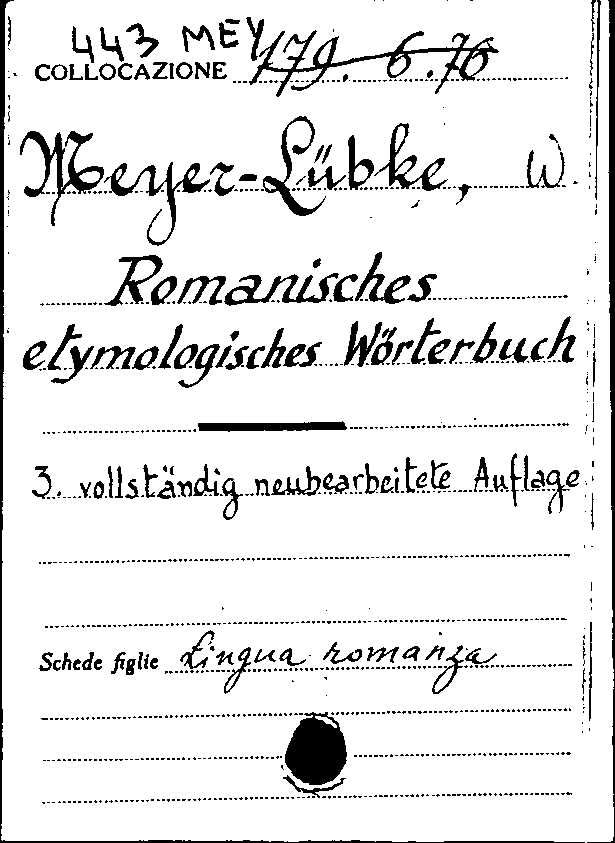 443 MEY
COLLOCAZIONE 179. 6.76
Meyer-Lübke, W.
Romanisches
etymologisches Wörterbuch
3. vollständig neubearbeitete Auflage
Schede figlie Lingua romanza